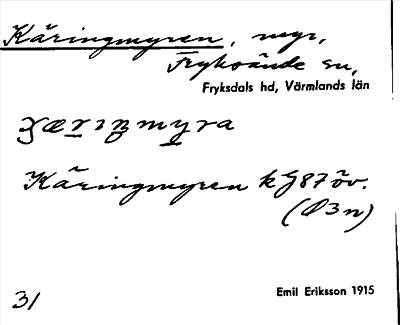 Käringmyren, myr,
Fryksände sn,
Fryksdals hd, Värmlands län
Käringmyren k G87 öv.
(Ø3n)
31 Emil Eriksson 1915